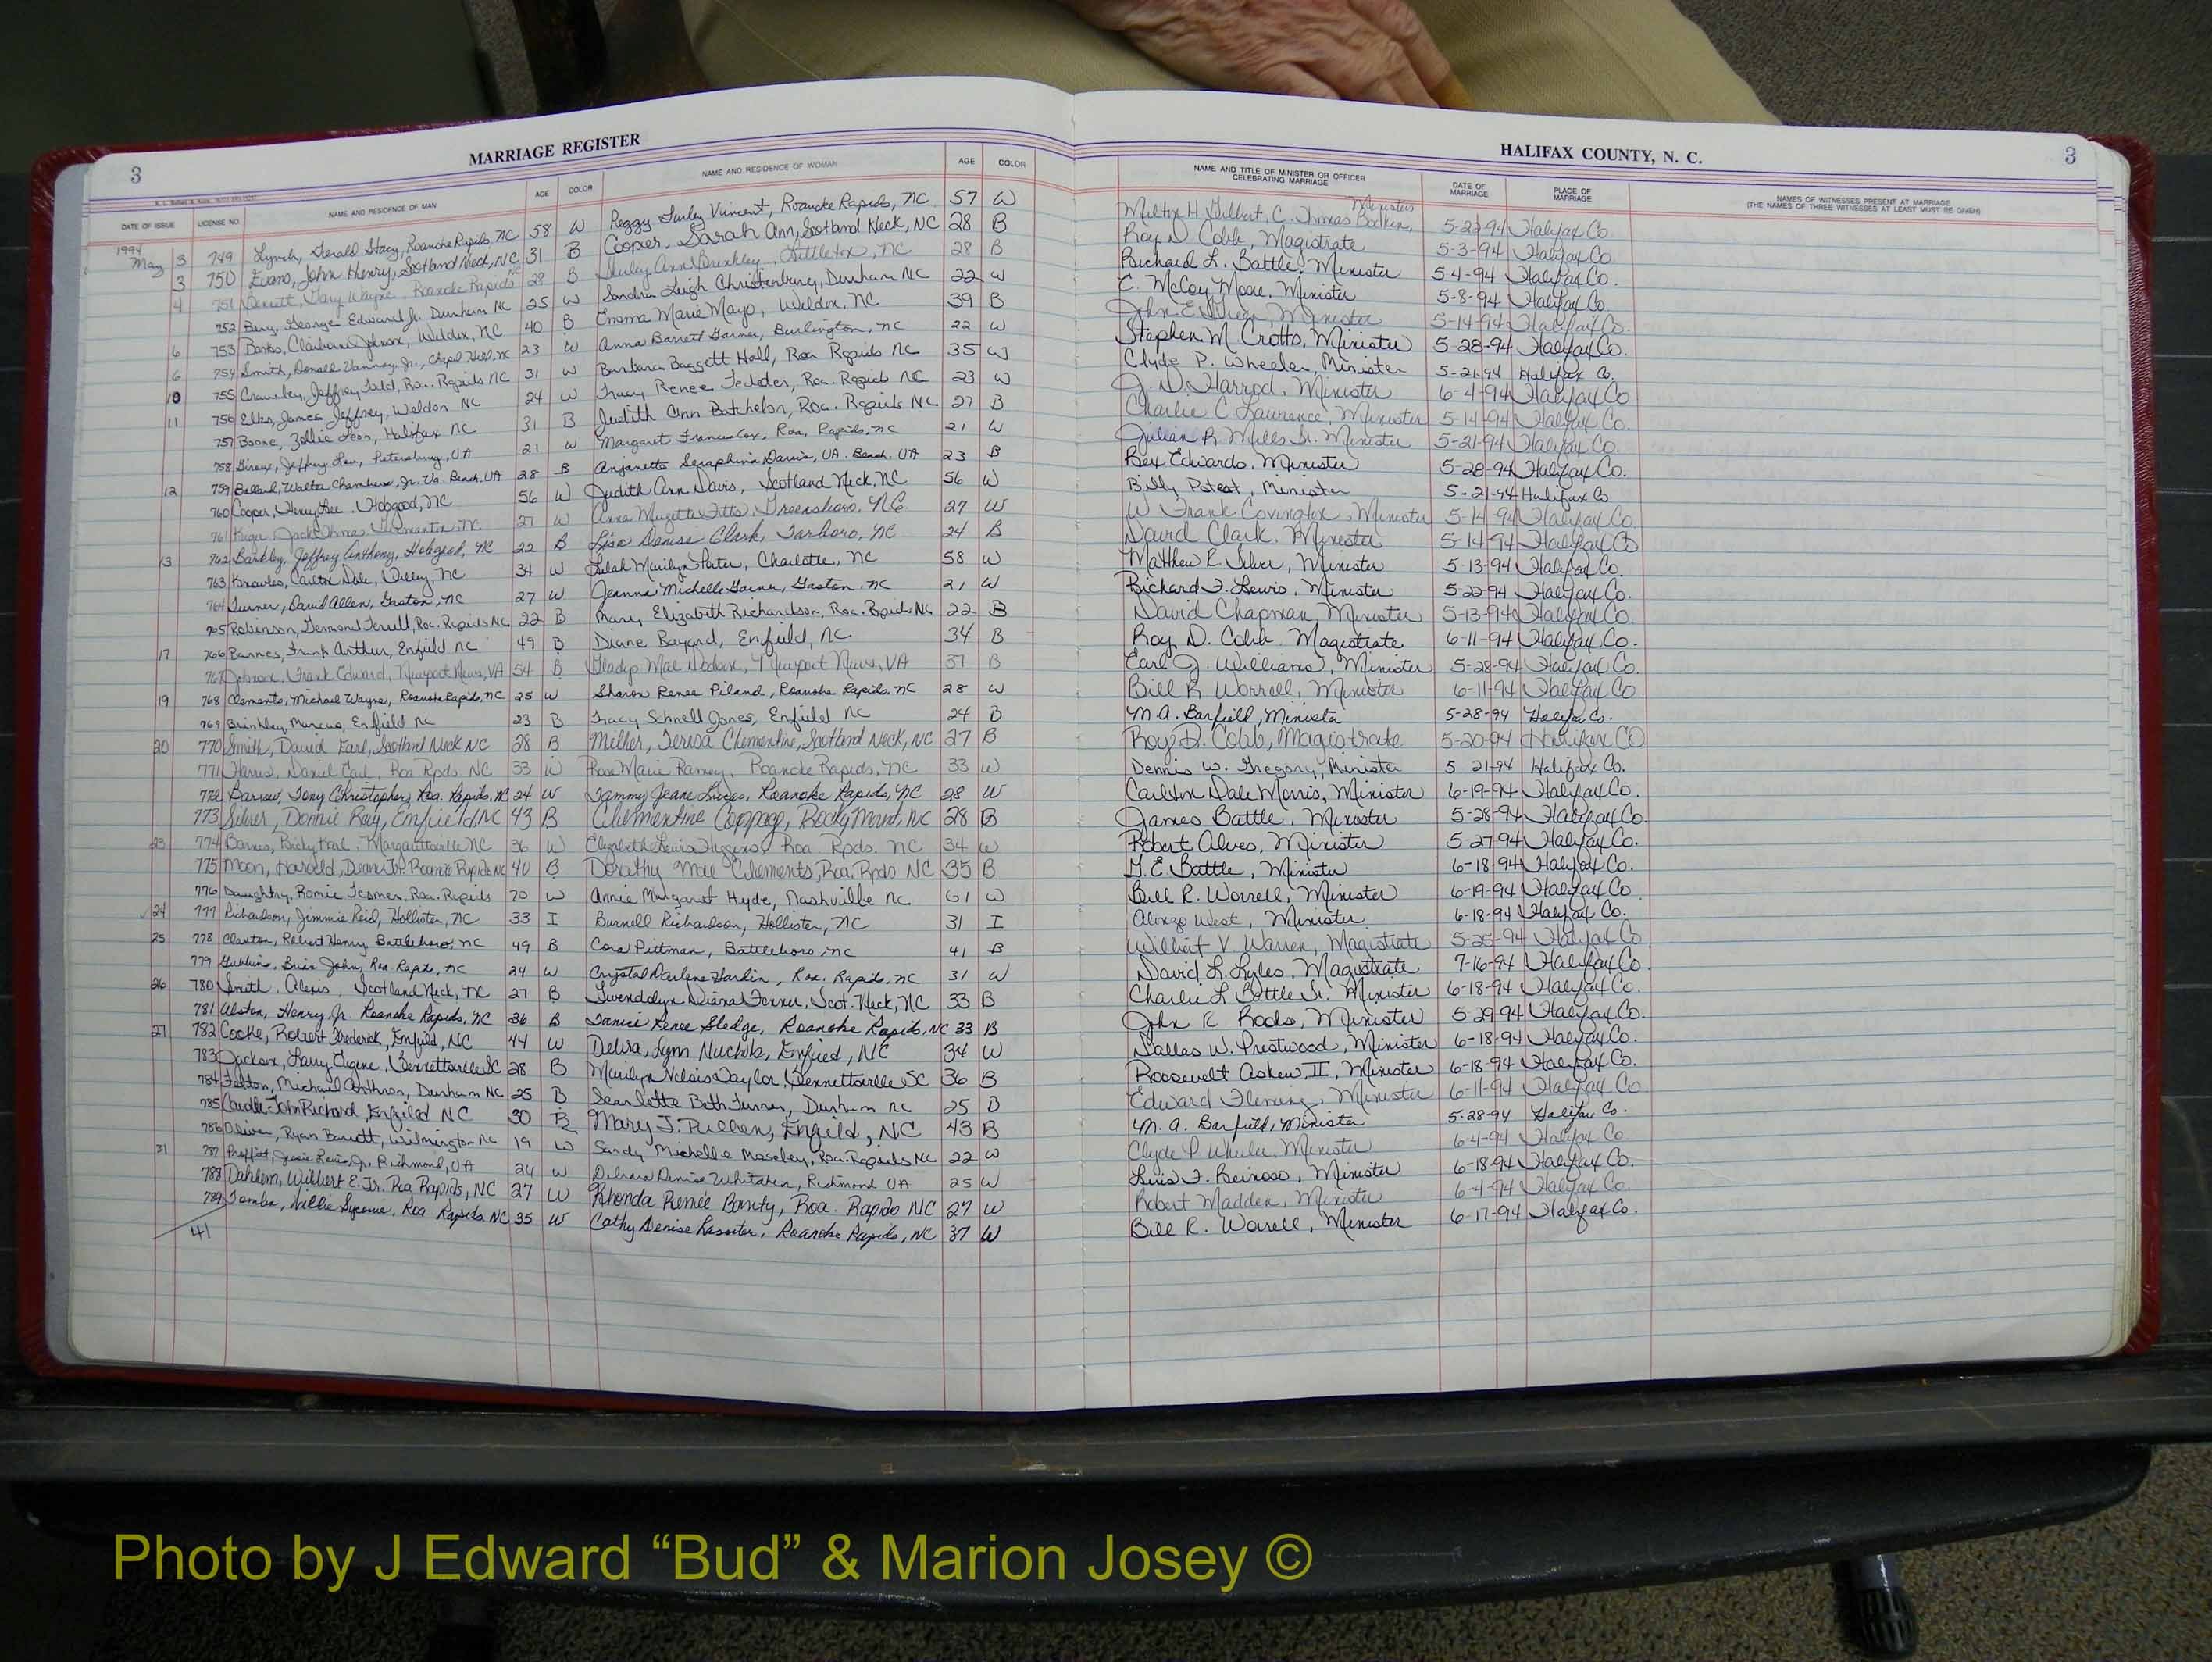 3 MARRIAGE REGISTER HALIFAX COUNTY, N. C. 3
DATE OF ISSUE LICENSE NO. NAME AND RESIDENCE OF MAN AGE COLOR NAME AND RESIDENCE OF WOMAN AGE COLOR NAME AND TITLE OF MINISTER OR OFFICER CELEBRATING MARRIAGE DATE OF MARRIAGE PLACE OF MARRIAGE NAMES OF WITNESSES PRESENT AT MARRIAGE (THE NAMES OF THREE WITNESSES AT LEAST MUST BE GIVEN)
1994 May 3 749 Lynch, Gerald Stacy, Roanoke Rapids, NC 58 W Peggy Vincent, Roanoke Rapids, NC 57 W Milton H. Gilbert, C. Thomas Ministers 5-22-94 Halifax Co.
3 750 Evans, John Henry, Scotland Neck, NC 31 B Cooper, Sarah Ann, Scotland Neck, NC 28 B Roy D. Cobb, Magistrate 5-3-94 Halifax Co.
4 751 Gary Wayne, Roanoke Rapids NC 28 B Shirley Ann Brinkley, Littleton, NC 28 B Richard L. Battle, Minister 5-4-94 Halifax Co.
752 Berg, George Edward Jr. Durham NC 25 W Sandra Leigh Christenbury, Durham NC 22 W C. McCoy Moore, Minister 5-8-94 Halifax Co.
6 753 Banks, Claiborn Johnson, Weldon, NC 40 B Emma Marie Mayo, Weldon, NC 39 B John E. Minister 5-14-94 Halifax Co.
6 754 Smith, Donald Jr., Chapel Hill, NC 23 W Anna Barrett Garner, Burlington, NC 22 W Stephen M. Crotts, Minister 5-28-94 Halifax Co.
10 755 Crawley, Jeffrey Todd, Roa. Rapids NC 31 W Barbara Baggett Hall, Roa Rapids NC 35 W Clyde P. Wheeler, Minister 5-21-94 Halifax Co.
11 756 Elks, James Jeffrey, Weldon NC 24 W Tracy Renee Roa. Rapids NC 23 W J. D. Harrod, Minister 6-4-94 Halifax Co
757 Boone, Zollie Leon, Halifax NC 31 B Judith Ann Batchelor, Roa. Rapids NC 27 B Charlie C. Lawrence, Minister 5-14-94 Halifax Co.
758 Giroux, Jeffrey Petersburg, VA 21 W Margaret Frances Cox, Roa. Rapids, NC 21 W Julian R. Mills Sr. Minister 5-21-94 Halifax Co.
12 759 Ballard, Walter Chambers, Jr. Va. Beach, VA 28 B Anjanette Seraphina Davis, VA. Beach, VA 23 B Rex Edwards, Minister 5-28-94 Halifax Co.
760 Cooper, Henry Lee, Hobgood, NC 56 W Judith Ann Davis, Scotland Neck, NC 56 W Billy Poteat, Minister 5-21-94 Halifax Co
761 Jack Thomas, NC 27 W Anna Fitts, Greensboro, NC 27 W W. Frank Covington, Minister 5-14-94 Halifax Co.
13 762 Barkley, Jeffrey Anthony, Hobgood, NC 22 B Lisa Denise Clark, Tarboro, NC 24 B David Clark, Minister 5-14-94 Halifax Co
763 Knowles, Carlton Dale, NC 34 W Lelah Marilyn Pater, Charlotte, NC 58 W Matthew R. Silver, Minister 5-13-94 Halifax Co.
764 Turner, David Allen, Gaston, NC 27 W Jeanna Michelle Garner, Gaston, NC 21 W Richard F. Lewis, Minister 5-22-94 Halifax Co.
765 Robinson, Terrell, Roa. Rapids NC 22 B Mary Elizabeth Richardson, Roa. Rapids NC 22 B David Chapman, Minister 5-13-94 Halifax Co.
17 766 Barnes, Frank Arthur, Enfield NC 49 B Diane Bayard, Enfield, NC 34 B Roy D. Cobb, Magistrate 6-11-94 Halifax Co.
767 Johnson, Frank Edward, Newport News, VA 54 B Gladys Mae Newport News, VA 37 B Earl J. Williams, Minister 5-28-94 Halifax Co.
19 768 Clements, Michael Wayne, Roanoke Rapids, NC 25 W Sharon Renee Piland, Roanoke Rapids, NC 28 W Bill R. Worrell, Minister 6-11-94 Halifax Co
769 Brinkley, Marcus, Enfield NC 23 B Tracy Schnell Jones, Enfield NC 24 B M.A. Barfield, Minister 5-28-94 Halifax Co.
20 770 Smith, David Earl, Scotland Neck NC 28 B Miller, Teresa Clementine, Scotland Neck, NC 27 B Roy D. Cobb, Magistrate 5-20-94 Halifax CO
771 Harris, Daniel Carl, Roa Rpds. NC 33 W Rose Marie Ramey, Roanoke Rapids, NC 33 W Dennis W. Gregory, Minister 5 21-94 Halifax Co.
772 Barrow, Tony Christopher, Roa. Rapids, NC 24 W Tammy Jeane Roanoke Rapids, NC 28 W Carlton Dale Morris, Minister 6-19-94 Halifax Co.
773 Silver, Donnie Ray, Enfield NC 43 B Clementine Coppage, Rocky Mount, NC 28 B James Battle, Minister 5-28-94 Halifax Co.
23 774 Barnes, Ricky Karl, Margarettsville NC 36 W Elizabeth Lewis Higgins, Roa. Rpds. NC 34 W Robert Alves, Minister 5-27-94 Halifax Co.
775 Moon, Harold, Jr. Roanoke Rapids NC 40 B Dorothy Mae Clements, Roa. Rpds NC 35 B Battle, Minister 6-18-94 Halifax Co.
776 Daughtry, Romie Roa. Rapids 70 W Annie Margaret Hyde, Nashville NC 61 W Bill R. Worrell, Minister 6-19-94 Halifax Co
24 777 Richardson, Jimmie Reid, Hollister, NC 33 I Burnell Richardson, Hollister, NC 31 I Alonzo West, Minister 6-18-94 Halifax Co.
25 778 Claxton, Robert Henry, Battleboro, NC 49 B Cora Pittman, Battleboro, NC 41 B Wilbert V. Warren, Magistrate 5-25-94 Halifax Co
779 Brian John, Roa Rapids, NC 24 W Crystal Darlene Hardin, Roa. Rapids, NC 31 W David L. Lyles, Magistrate 7-16-94 Halifax Co
26 780 Smith, Alexis, Scotland Neck, NC 27 B Gwendolyn Diana Scot. Neck, NC 33 B Charlie L Battle Sr. Minister 6-18-94 Halifax Co.
781 Alston, Henry Jr. Roanoke Rapids, NC 36 B Janice Renee Sledge, Roanoke Rapids, NC 33 B John R Minister 5-29-94 Halifax Co.
27 782 Cooke, Robert Frederick, Enfield, NC 44 W Debra Lynn Nuchols, Enfield, NC 34 W Dallas W. Prestwood, Minister 6-18-94 Halifax Co.
783 Jackson, Larry Eugene, Bennettsville SC 28 B Marilyn Taylor, Bennettsville SC 36 B Roosevelt Askew, II, Minister 6-18-94 Halifax Co.
784 Michael Durham NC 25 B Beth Turner, Durham NC 25 B Edward Fleming, Minister 6-11-94 Halifax Co
785 Caudle, John Richard, Enfield NC 30 B Mary J. Pullen, Enfield, NC 43 B M. A. Barfield, Minister 5-28-94 Halifax Co.
786 Oliver, Ryan Barrett, Wilmington NC 19 W Sandy Michelle Moseley, Roa. Rapids NC 22 W Clyde P Wheeler, Minister 6 4-94 Halifax Co
31 787 Proffitt, Jessie Lewis, Jr. Richmond, VA 24 W Denise Whitaker, Richmond VA 25 W Luis F. Minister 6-18-94 Halifax Co.
788 Dahlem, Wilbert E. Jr. Roa Rapids, NC 27 W Rhonda Renée Bounty, Roa. Rapids NC 27 W Robert Madden, Minister 6-4-94 Halifax Co.
789 Willie Roa Rapids NC 35 W Cathy Denise Rassiter, Roanoke Rapids, NC 37 W Bill R. Worrell, Minister 6-17-94 Halifax Co.
41
Photo by J Edward “Bud” & Marion Josey ©